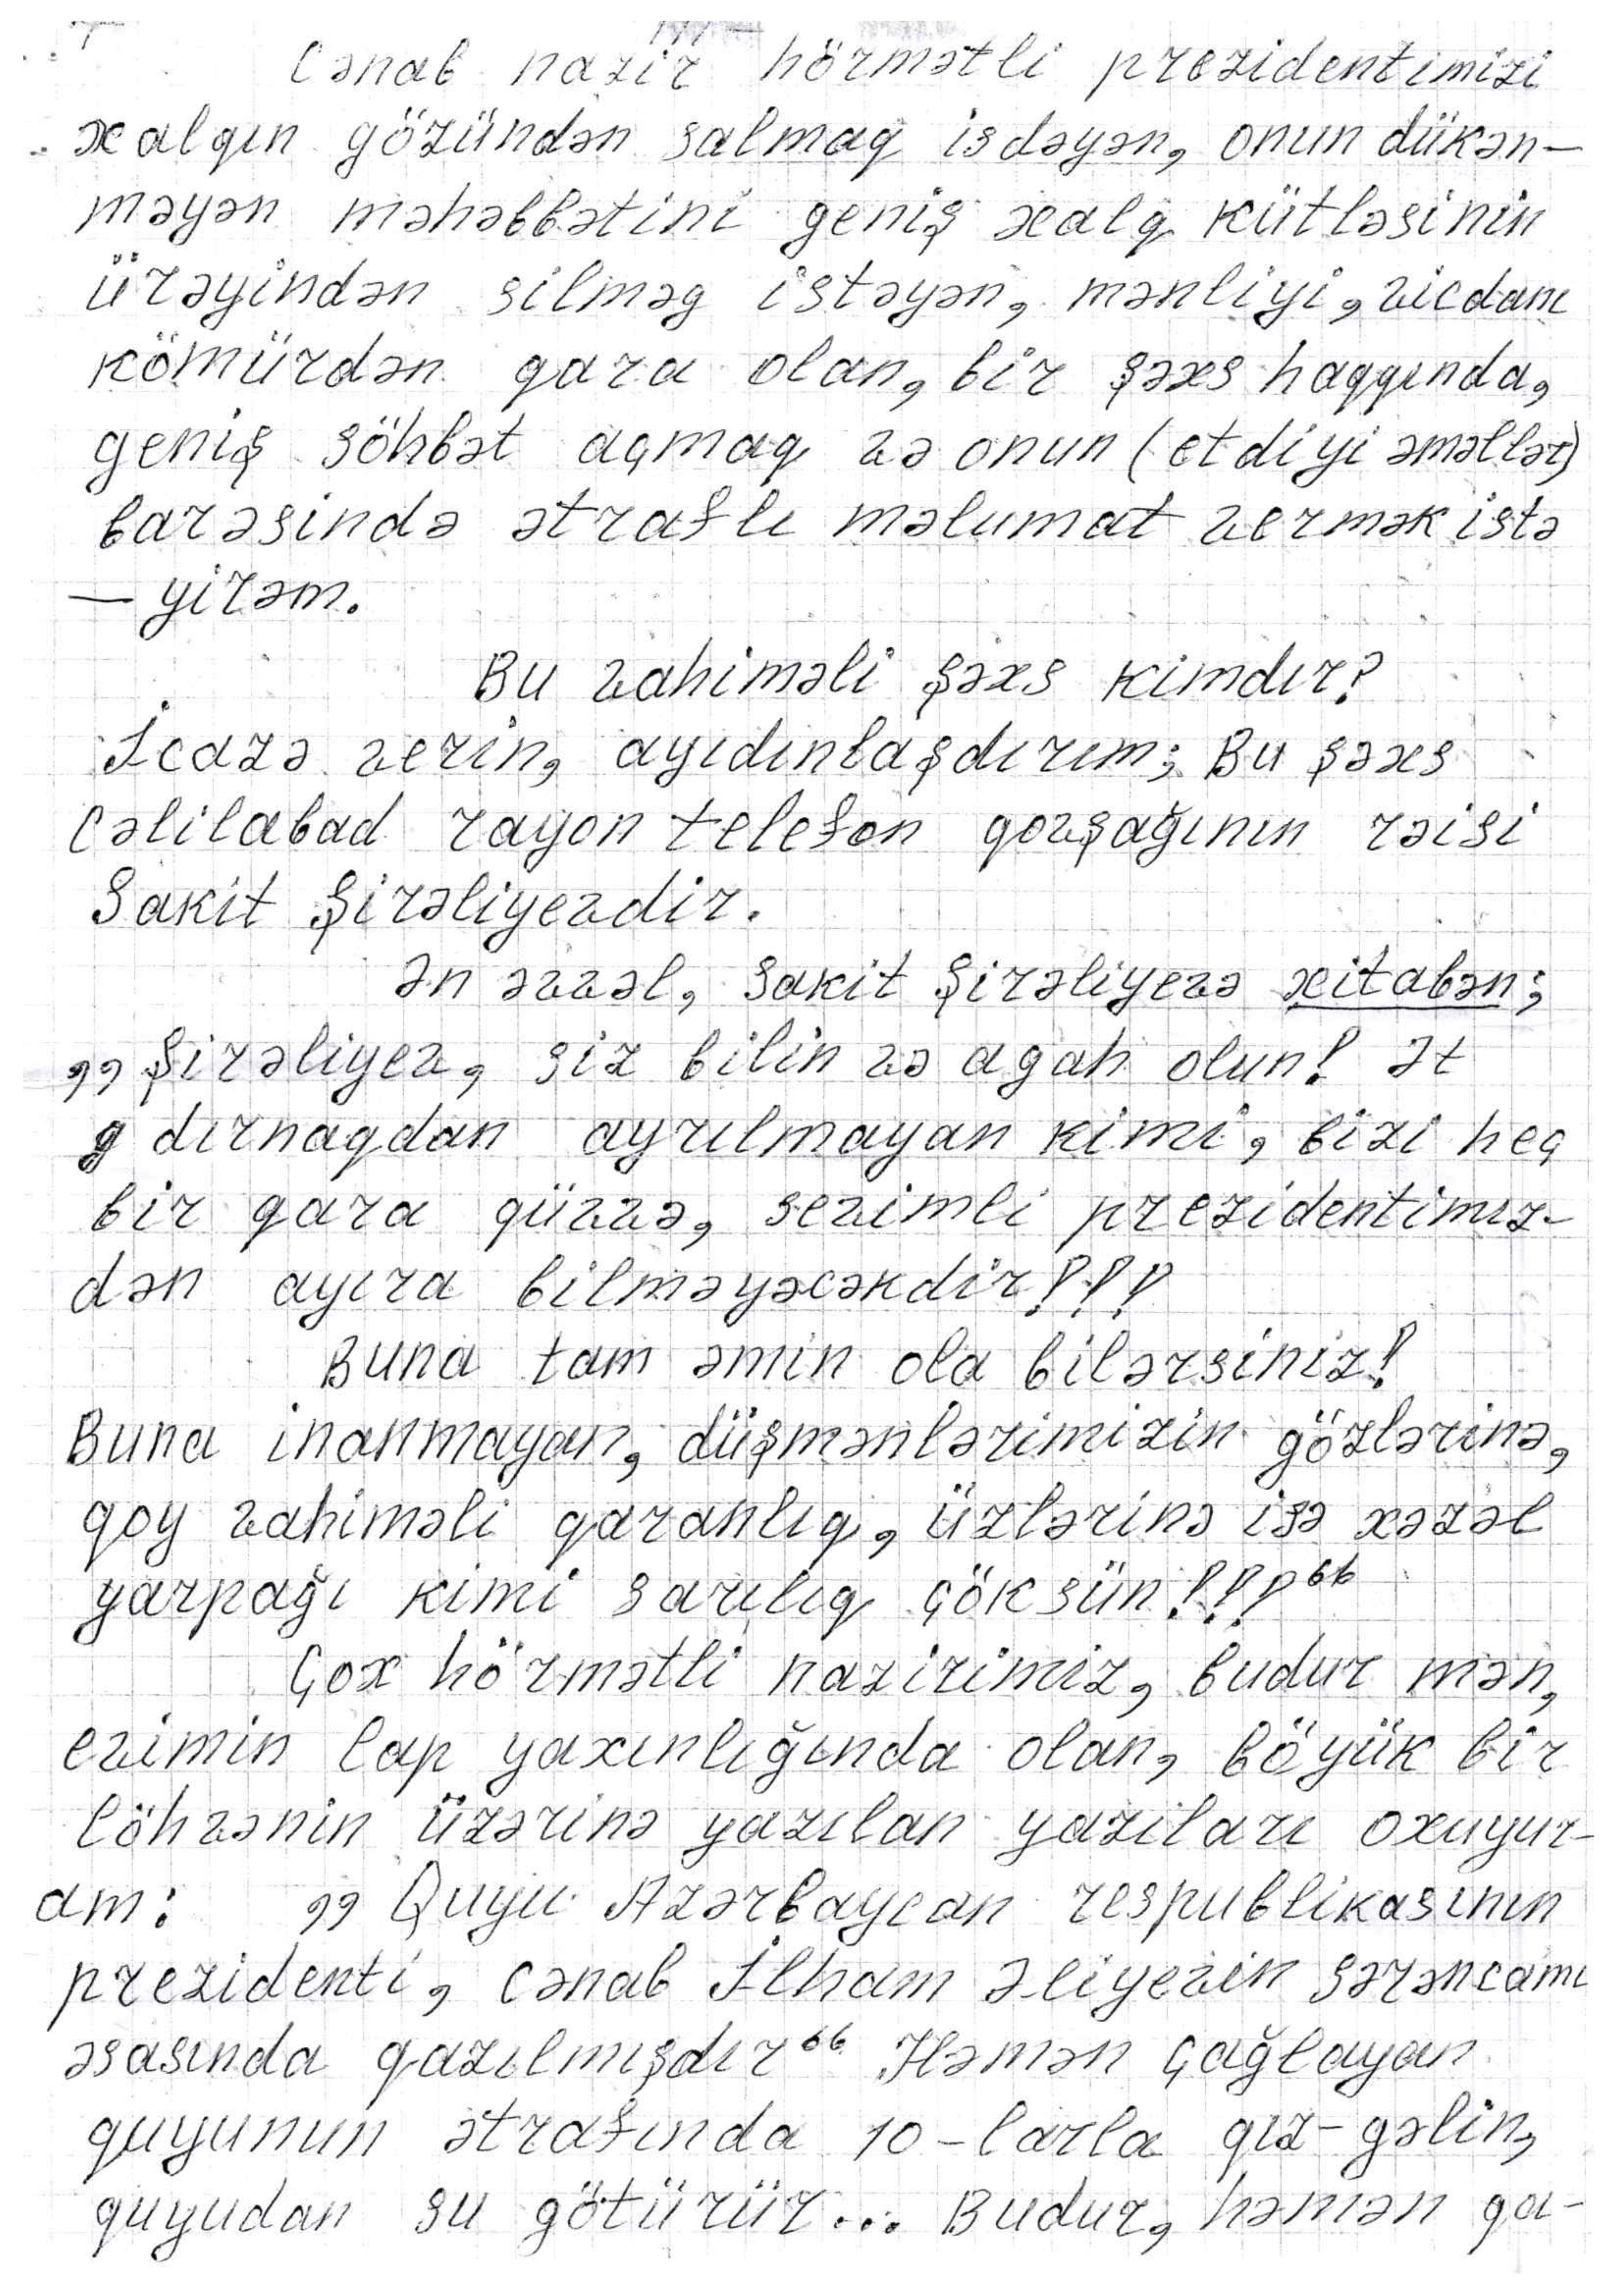 Cənab nazir hörmətli prezidentimizi
xalqın gözündən salmaq isdəyən, onun dükən-
məyən məhəbbətini geniş xalq kütləsinin
ürəyindən silməg istəyən, mənliyi, vicdanı
kömürdən qara olan, bir şəxs haqqında,
geniş söhbət açmaq və onun (etdiyi əməllər)
barəsində ətraflı məlumat vermək istə
- yirəm.
Bu vahiməli şəxs kimdır?
İcazə verin, ayıdınlaşdırım; Bu şəxs
Cəlilabad rayon telefon qovşağının rəisi
Sakit Şirəliyevdir.
Ən əvvəl, Sakit Şirəliyevə xitabən;
,, Şirəliyev, siz bilin və agah olun! Ət
dırnaqdan ayrılmayan kimi, bizi heç
bir qara qüvvə, sevimli prezidentimız-
dən ayıra bilməyəcəkdir!!!
Buna tam əmin ola bilərsiniz!
Buna inanmayan, düşmənlərimizin gözlərinə,
qoy vahiməli qaranlıq, üzlərinə isə xəzəl
yarpağı kimi sarılıq çöksün!!!“
Çox hörmətli nazirimiz, budur mən,
evimin lap yaxınlığında olan, böyük bir
löhvənin üzərinə yazılan yazıları oxuyur-
am: ,, Quyu Azərbaycan respublikasının
prezidenti, cənab İlham Əliyevin sərəncamı
əsasında qazılmışdır“ Həmən çağlayan
quyunun ətrafında 10-larla qız-gəlin,
quyudan su götürür... Budur, həmən qa-